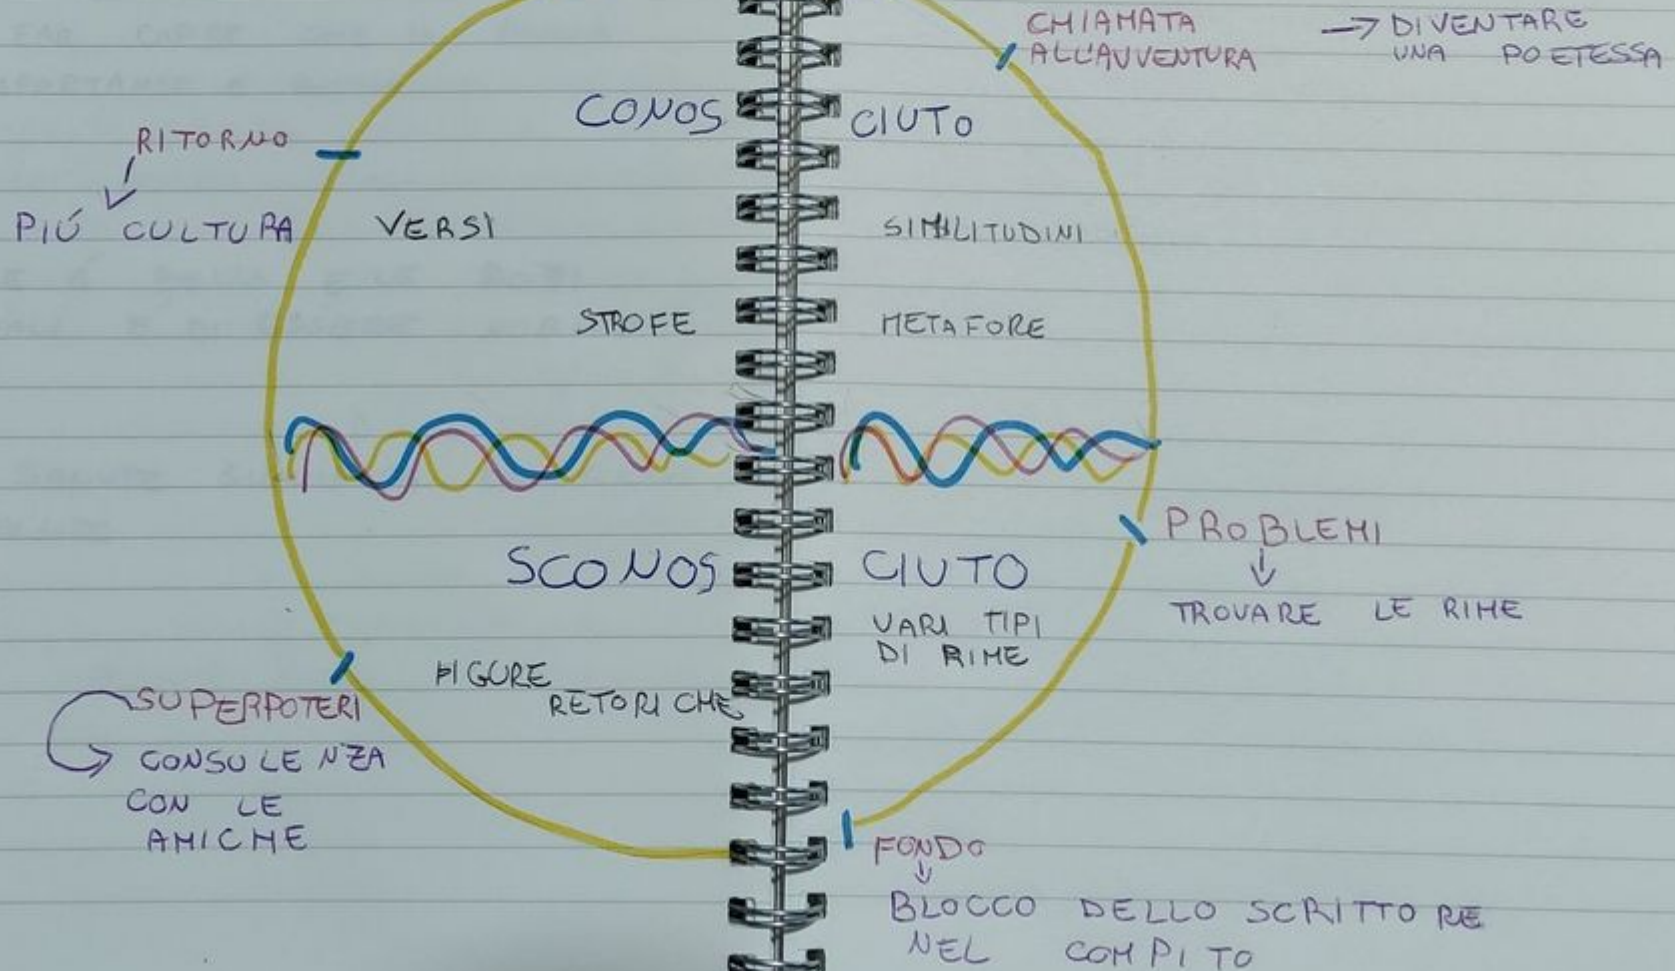 CHIAMATA
ALL'AVVENTURA
→ DIVENTARE
UNA POETESSA
CONOSCIUTO
RITORNO
PIÚ CULTURA
VERSI
SIMILITUDINI
STROFE
METAFORE
SCONOSCIUTO
PROBLEMI
TROVARE LE RIME
VARI TIPI
DI RIME
FIGURE
RETORICHE
SUPERPOTERI
CONSULENZA
CON LE
AMICHE
FONDO
BLOCCO DELLO SCRITTORE
NEL COMPITO